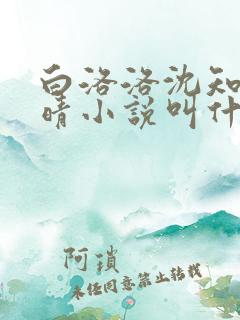 白洛洛沈知
晴小说叫什
阿琐
未经同意禁止转载